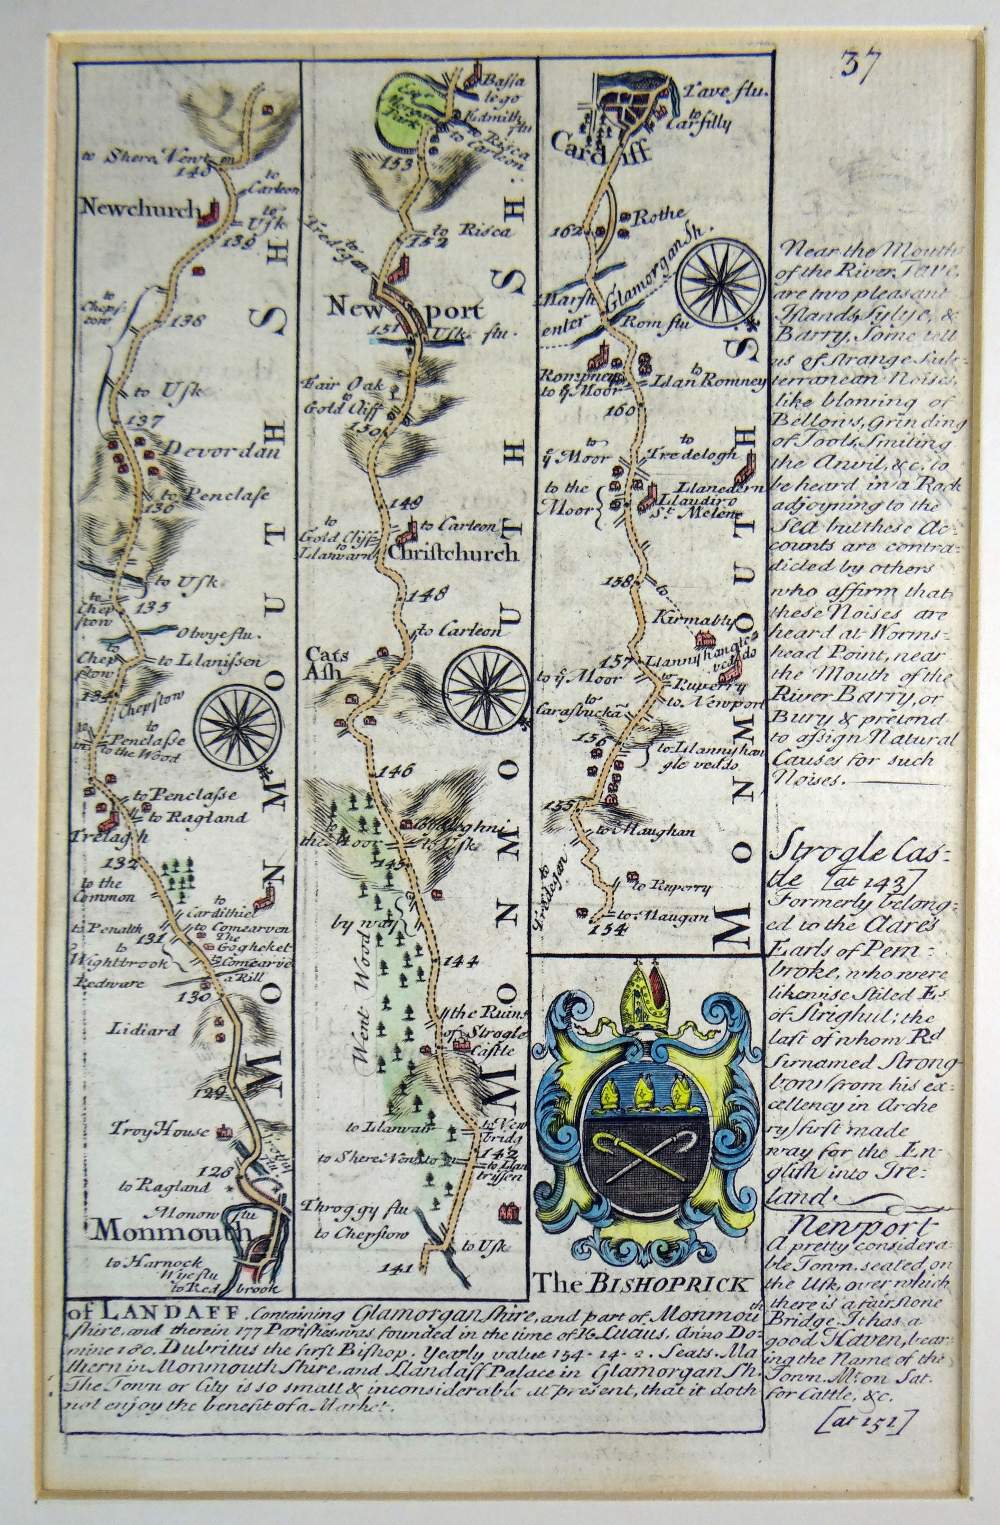 37
to Shere Newt
140
to
Carleon
Newchurch
to
Usk
139
to
Chepstow
138
to Usk
137
Devordan
to Penclase
136
to Usk
to
Chepstow
135
Olwye flu.
to
Chepstow
to Llanissen
134
Chepstow
to
Penclasse
to the Wood
to Penclasse
to Ragland
Trelagh
132
to the
Common
to
Cardithiel
to Penalth
to Comearvon
The
Gogheket
131
to
Wightbrook
Comearve
a Rill
Redware
130
Lidiard
129
Troy House
128
to Ragland
Monow flu
Monmouth
to Harnock
Wye flu
to Redbrook
MONMOUTH SH
Bassa
lego
Edmith flu
to Risca
to Carleon
153
to Risca
152
to
Tredegar
Newport
151
Usk flu.
Fair Oak
to
Gold Cliff
150
149
to
Gold Cliff
to
Llanwarn
to Carleon
Christchurch
148
to Carleon
Cats
Ash
146
to
the Moor
to Usk
145
by way
Went Wood
144
the Ruins
of Strogle
Castle
to Llanvair
to New
bridg
142
to Shere Newton
to Llan
trissen
Throggy flu
to Chepstow
to Usk
141
MONMOUTH SH:
Tave flu.
to
Carfilly
Cardiff
Rothe
162
Marsh
enter Glamorgan Sh.
Rom flu
Rompney
to yͤ Moor
to
Llan Romney
160
to
yͤ Moor
to
Tredelogh
to the
Moor
Llanedern
Llaudiro
St. Melene
158
to
Kirmably
157
Llannyhangle
veddo
to yͤ Moor
to Ruperry
to Newport
to
Carasbuckan
156
to Llannyhan
gle veddo
155
to Maughan
to
Tredegar
to Ruperry
to Maugan
154
MONMOUTH SH.
Near the Mouth
of the River Tave,
are two pleasant
Islands, Sylye, &
Barry. Some tell
us of strange Sub-
terranean Noises,
like blowing of
Bellows, Grinding
of Tools, Smiting
the Anvil, &c. to
be heard in a Rock
adjoyning to the
Sea but these Ac-
counts are contra-
dicted by others
who affirm that
these Noises are
heard at Worms-
head Point, near
the Mouth of the
River Barry, or
Bury & pretend
to assign Natural
Causes for such
Noises.
Strogle Cas-
tle [at 143]
Formerly belong-
ed to the Clares
Earls of Pem-
broke, who were
likewise stiled Es
of Strighul; the
last of whom Rd
Sirnamed Strong
bow (from his ex-
cellency in Arche
ry) first made
way for the En-
glish into Ire-
land.
Newport
A pretty considera-
ble Town, seated on
the Usk, over which
there is a fair stone
Bridge. It has a
good Haven, bear-
ing the Name of the
Town. Mt on Sat.
for Cattle, &c.
[at 151]
The BISHOPRICK
of LANDAFF, Containing Glamorgan shire, and part of Monmouth
shire, and therein 177 Parishes was founded in the time of K. Lucius, Anno Do-
mine 180. Dubritus the first Bishop. Yearly value 154-14-2. Seats, Ma
thern in Monmouth Shire, and Llandaff Palace in Glamorgan Sh.
The Town or City is so small & inconsiderable at present, that it doth
not enjoy the benefit of a Market.